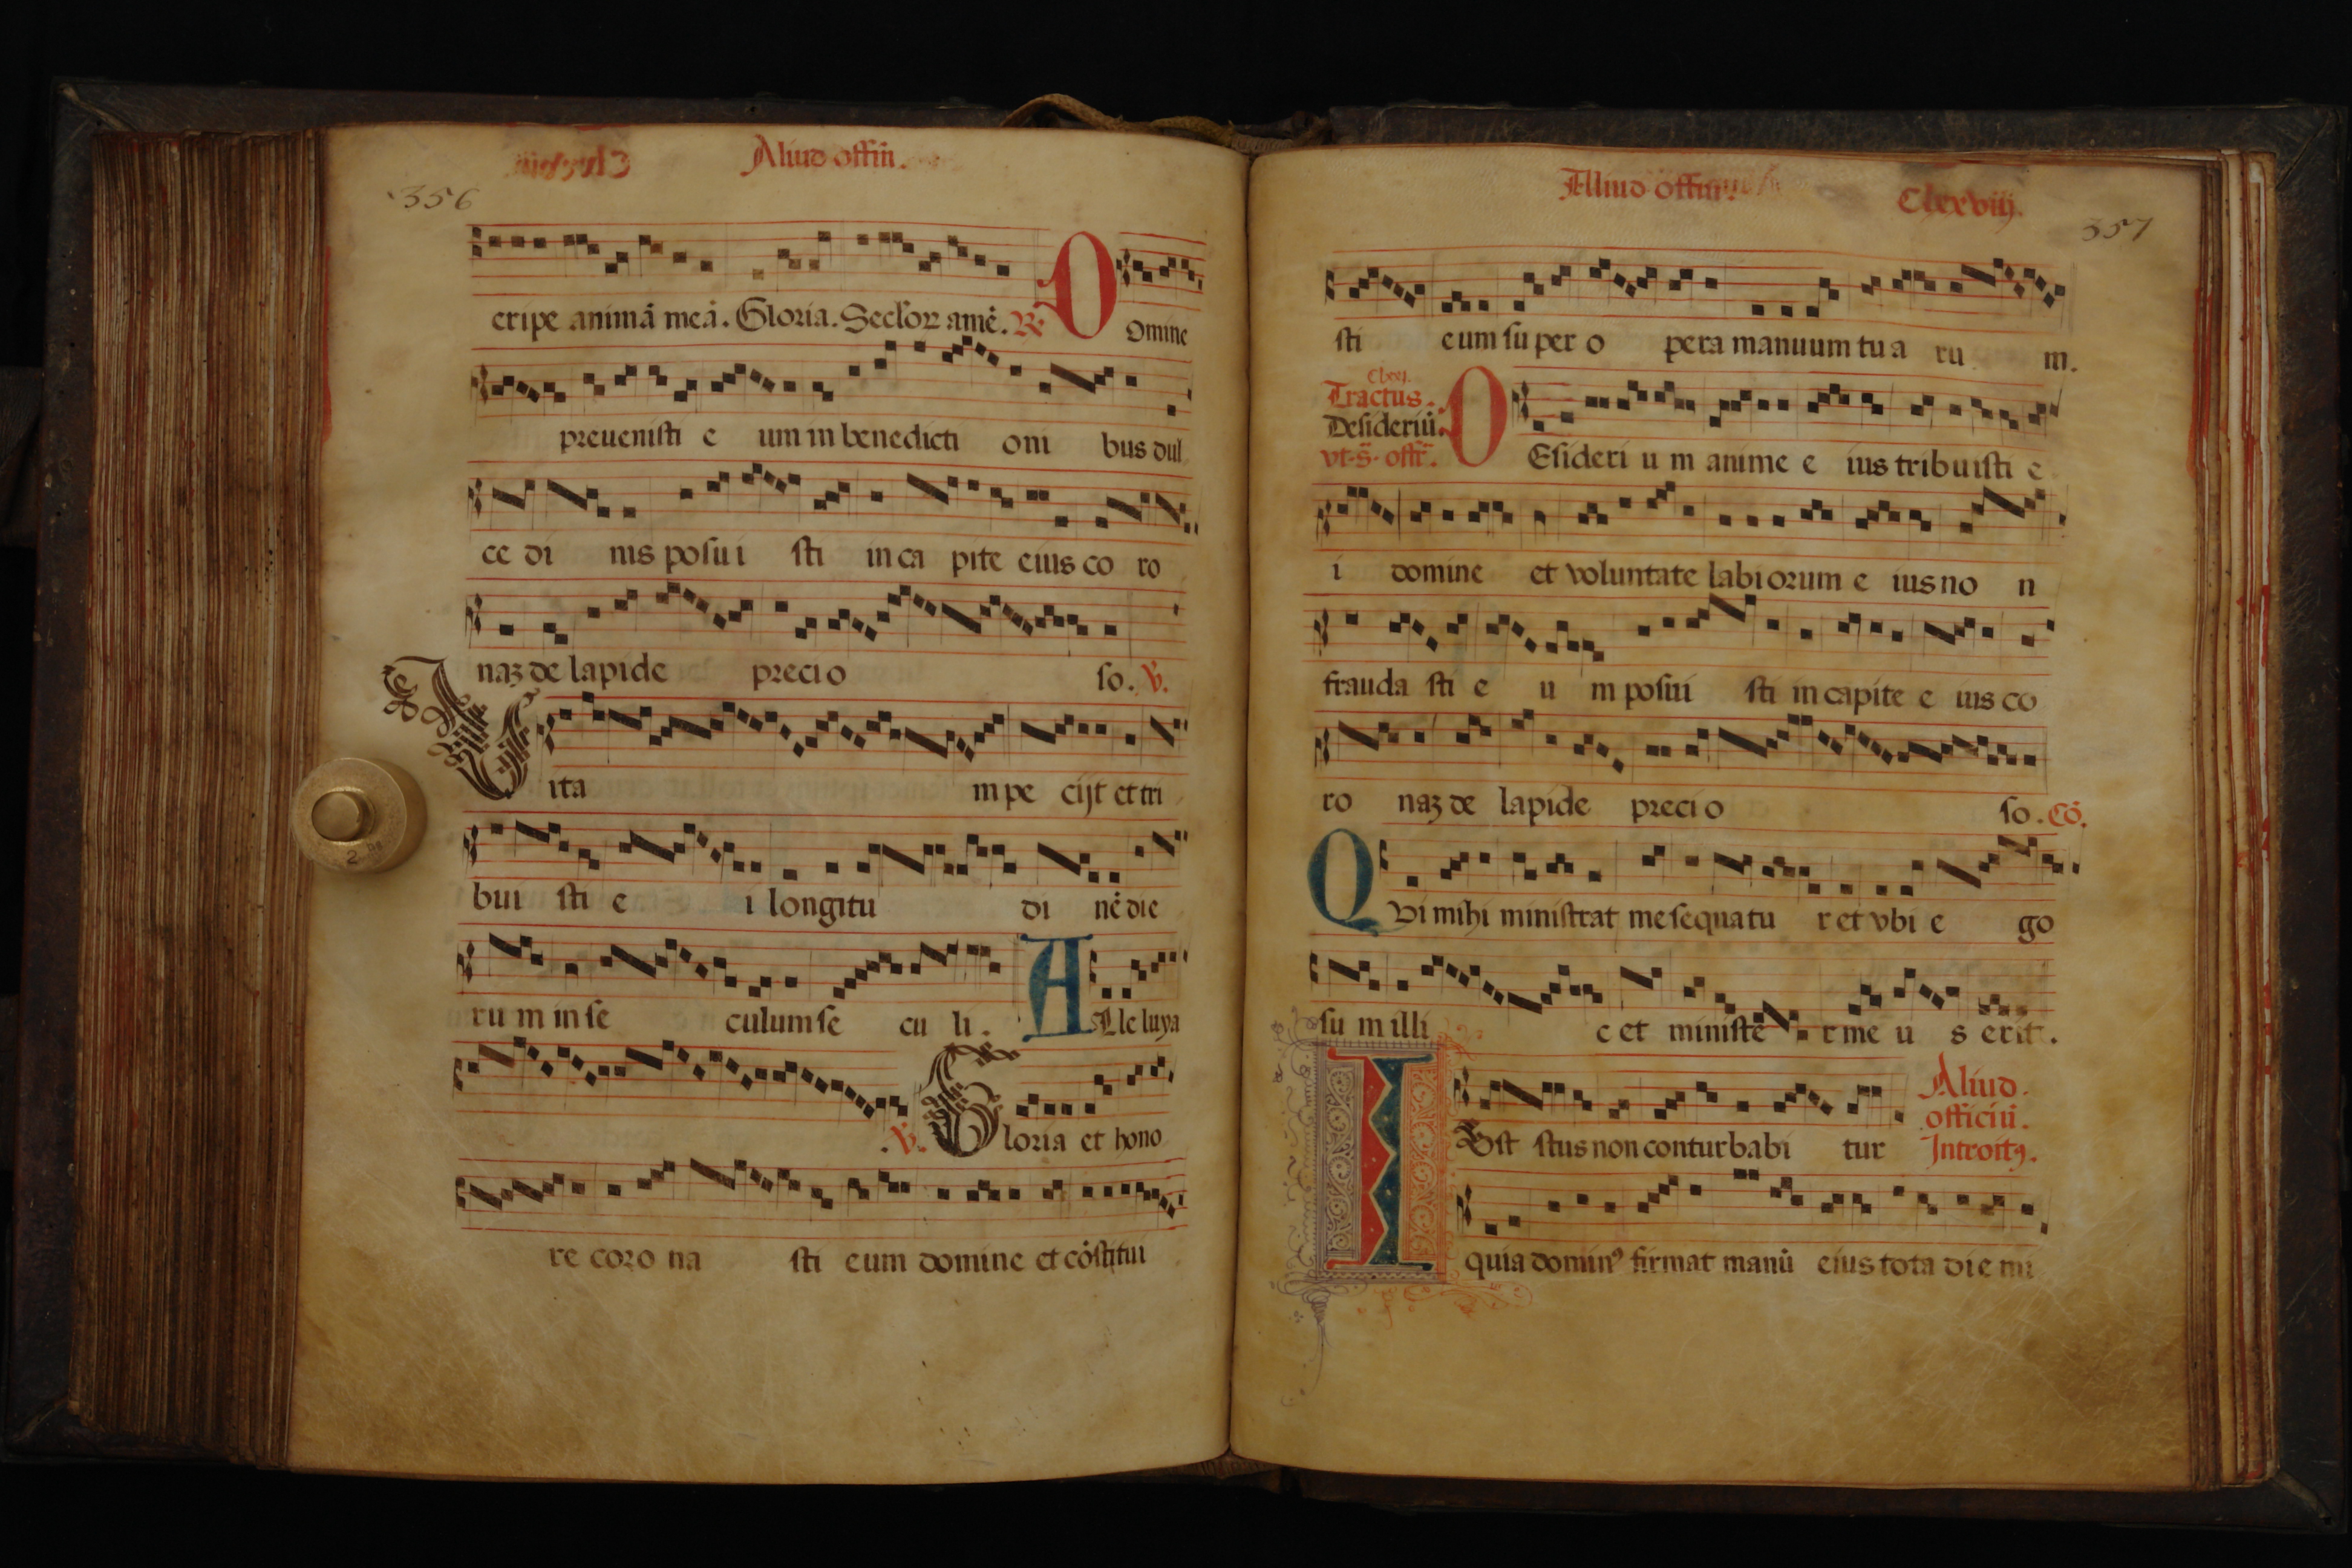 Aliud offiñ.
356
eripe animā meā. Gloria. Seclor̄ amē. R̃ Domine
preuenisti e um in benedicti oni bus dul
ce di nis posui sti in ca pite eius co ro
naȝ de lapide precio so. V̄.
Vita m pe cijt et tri
bui sti e i longitu di nē die
ru m in se culum se cu li.
ALle luya
.V̄. Gloria et hono
re coro na sti eum domine et cōstitui
Aliud offiñ.
Clxxviij.
357
sti eum su per o pera manuum tu a ru m.
Tractus.
Desideriū.
vt. s̄. offȓ.
DEsideri u m anime e ius tribuisti e
i domine et voluntate labiorum e ius no n
frauda sti e u m posui sti in capite e ius co
ro naȝ de lapide precio so. Cō.
QVi mihi ministrat me sequatu r et vbi e go
su m illi c et ministe r me u s erit.
IVst stus non conturbabi tur
Aliud
officiū.
Introitꝰ.
quia dominꝰ firmat manū eius tota die mi